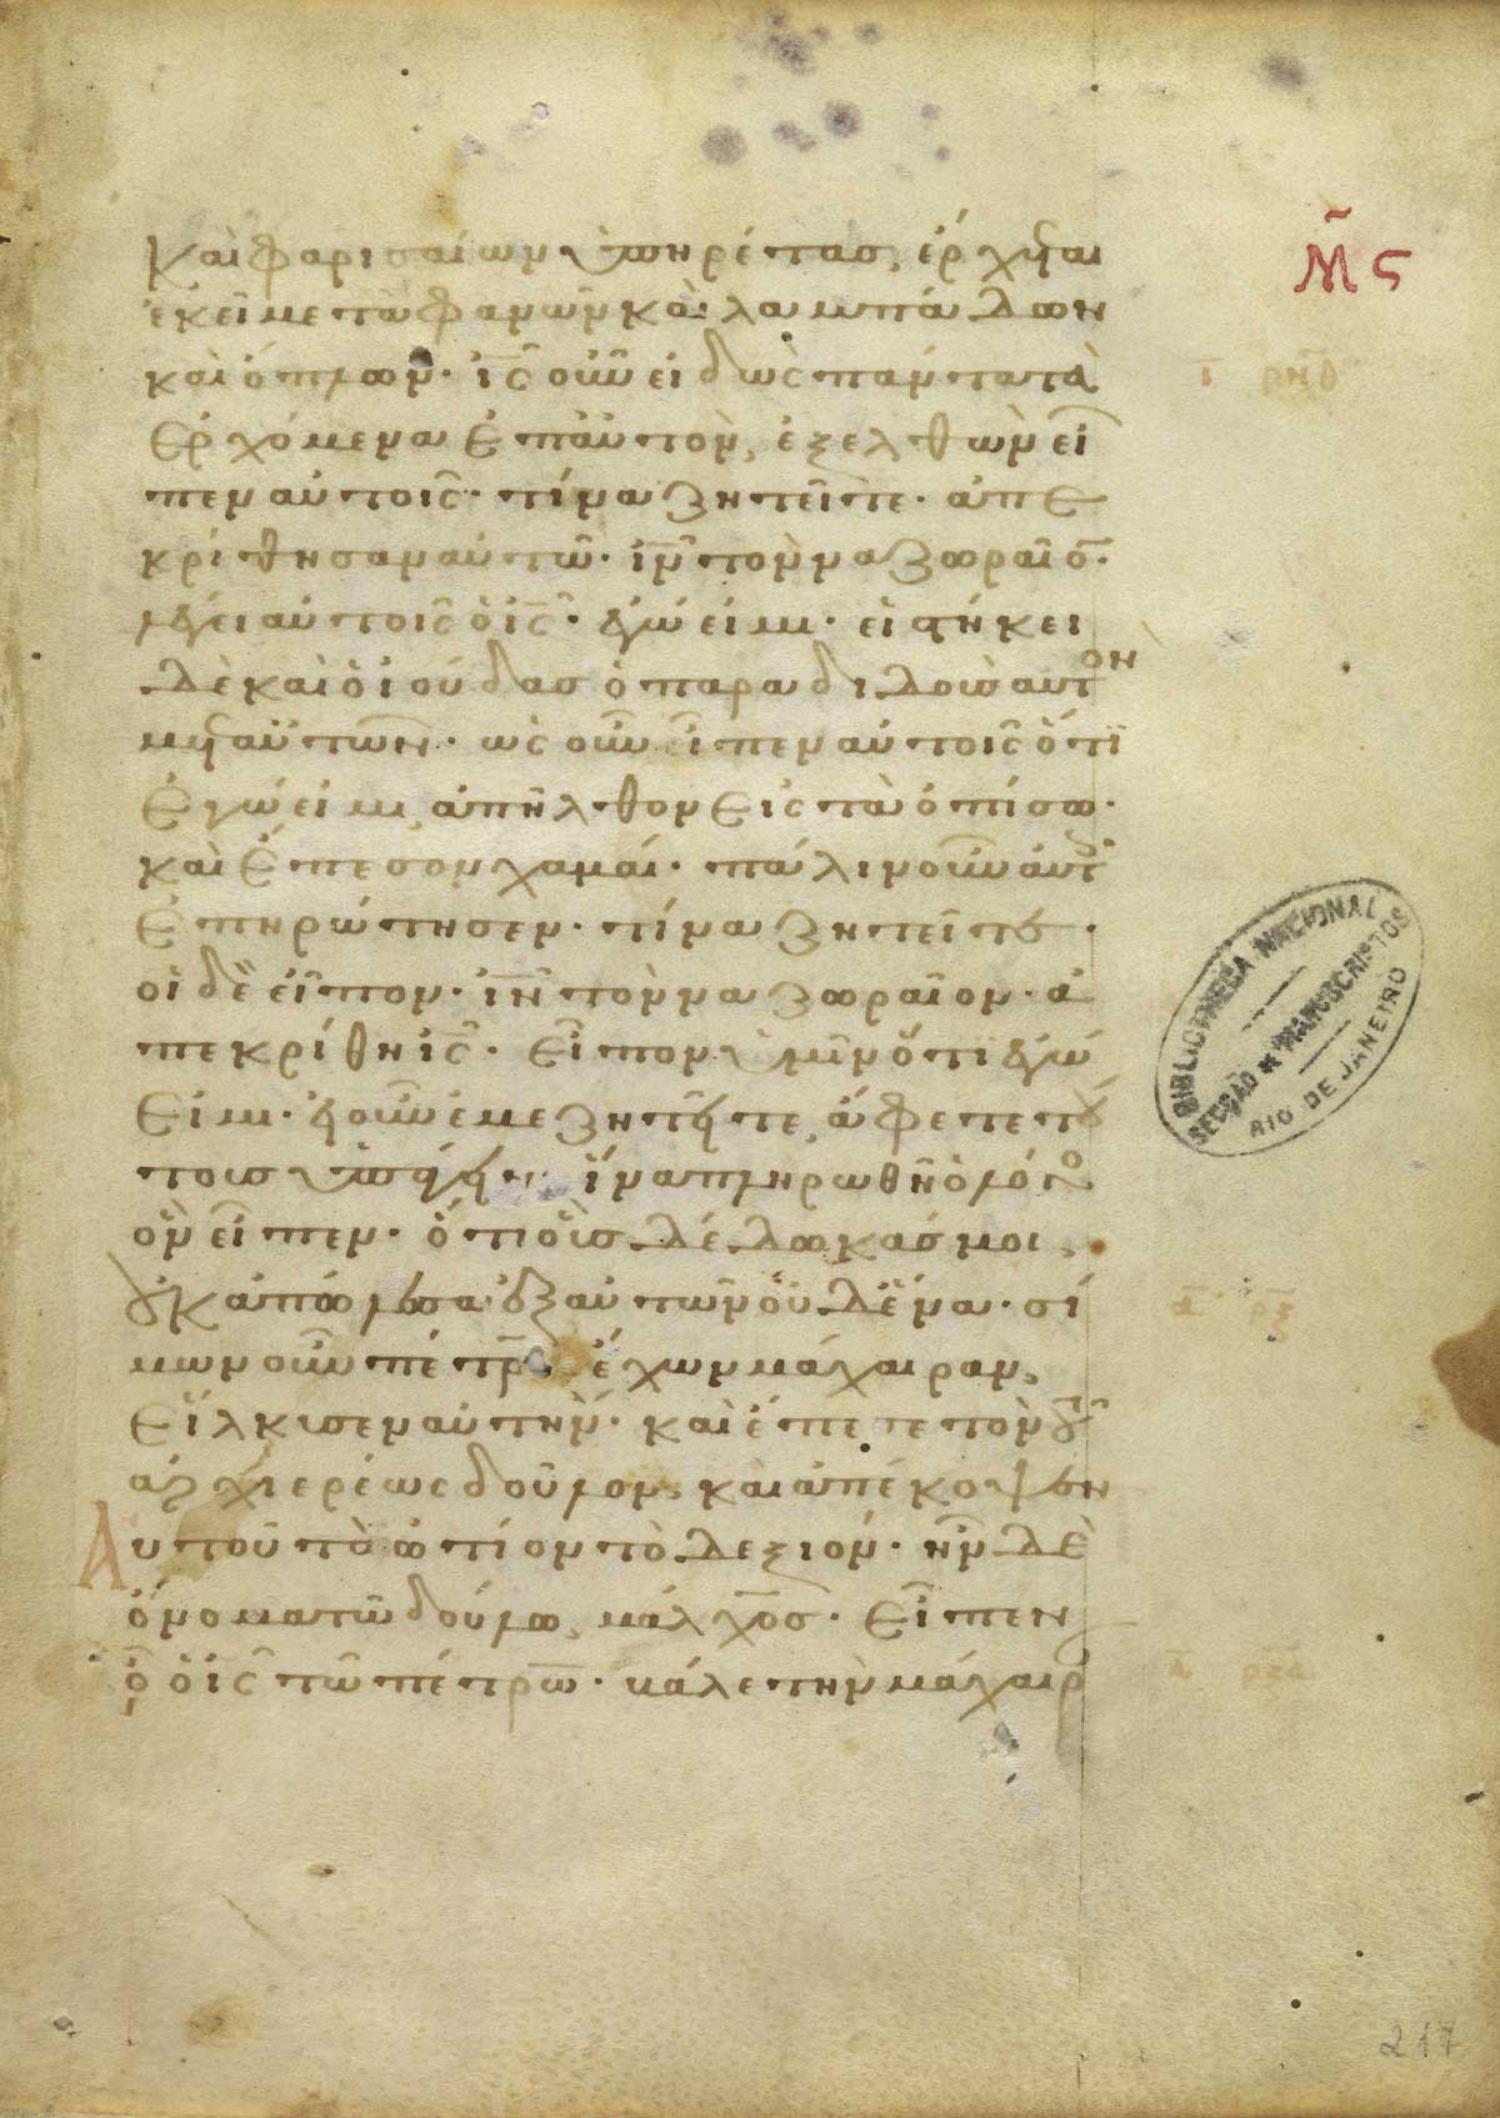 καὶ φαρισαίων ὑπηρέτας, ἔρχεται
ἐκεῖ μετὰ φανῶν καὶ λαμπάδων
καὶ ὅπλων· ἰς̅ οὖν εἰδὼς πάντα τὰ
ἐρχόμενα ἐπ' αὐτὸν, ἐξελθὼν εἶ
πεν αὐτοῖς· τίνα ζητεῖτε· ἀπε
κρίθησαν αὐτῶ· ἰν̅ τὸν ναζωραῖο̅·
λέγει αὐτοῖς ὁ ἰς̅· ἐγώ εἰμι· εἱστήκει
δὲ καὶ ὁ ἰούδας ὁ παραδιδοὺς αὐτὸν
μετ' αὐτῶν· ὡς οὖν εἶπεν αὐτοῖς ὅτι
ἐγώ εἰμι, ἀπῆλθον εἰς τὰ ὀπίσω·
καὶ ἔπεσον χαμαί· πάλιν οὖν αὐτοὺς
ἐπηρώτησεν· τίνα ζητεῖτε·
οἱ δὲ εἶπον· ἰν̅ τὸν ναζωραῖον· ἀ
πεκρίθη ἰς̅· εἶπον ὑμῖν ὅτι ἐγώ
εἰμι· εἰ οὖν ἐμὲ ζητεῖτε, ἄφετε τού
τους ὑπάγειν· ἵνα πληρωθῆ ὁ λόγος
ὃν εἶπεν· ὅτι οὓς δέδωκάς μοι,
οὐκ ἀπώλεσα ἐξ αὐτῶν οὐδένα· σί
μων οὖν πέτρος ἔχων μάχαιραν,
εἵλκυσεν αὐτὴν· καὶ ἔπαισε τὸν τοῦ
ἀρχιερέως δοῦλον, καὶ ἀπέκοψεν
αὐτοῦ τὸ ὠτίον τὸ δεξιόν· ἦν δὲ
ὄνομα τῶ δούλω, μάλχος· εἶπεν
οὖν ὁ ἰς̅ τῶ πέτρω· βάλε τὴν μάχαιρ
Μ̃ ϛ
ι ρνθ
α ρξ
α ρξα
BIBLIOTHECA NACIONAL
SECÇÃO DE MANUSCRIPTOS
RIO DE JANEIRO
217